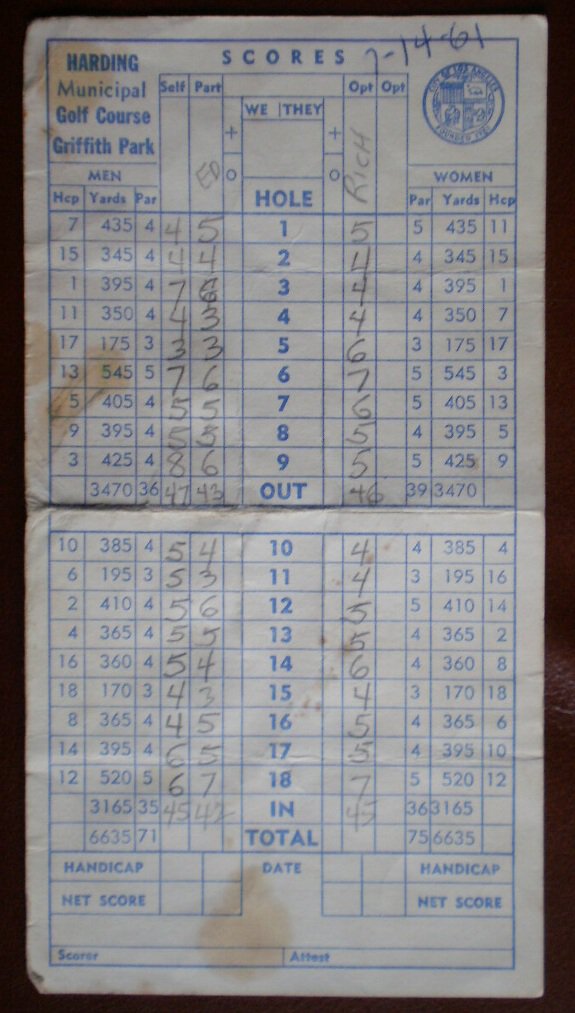 7-14-61
HARDING SCORES
Municipal Self Part Opt Opt
Golf Course WE THEY
Griffith Park + +
CITY OF LOS ANGELES FOUNDED 1781
MEN ED O O RICH WOMEN
Hcp Yards Par HOLE Par Yards Hcp
7 435 4 4 5 1 5 5 435 11
15 345 4 4 4 2 4 4 345 15
1 395 4 7 6 3 4 4 395 1
11 350 4 4 3 4 4 4 350 7
17 175 3 3 3 5 6 3 175 17
13 545 5 7 6 6 7 5 545 3
5 405 4 5 5 7 6 5 405 13
9 395 4 5 5 8 5 4 395 5
3 425 4 8 6 9 5 5 425 9
3470 36 47 43 OUT 46 39 3470
10 385 4 5 4 10 4 4 385 4
6 195 3 5 3 11 4 3 195 16
2 410 4 5 6 12 5 5 410 14
4 365 4 5 5 13 5 4 365 2
16 360 4 5 4 14 6 4 360 8
18 170 3 4 3 15 4 3 170 18
8 365 4 4 5 16 5 4 365 6
14 395 4 6 5 17 5 4 395 10
12 520 5 6 7 18 7 5 520 12
3165 35 45 42 IN 45 36 3165
6635 71 TOTAL 75 6635
HANDICAP DATE HANDICAP
NET SCORE NET SCORE
Scorer Attest